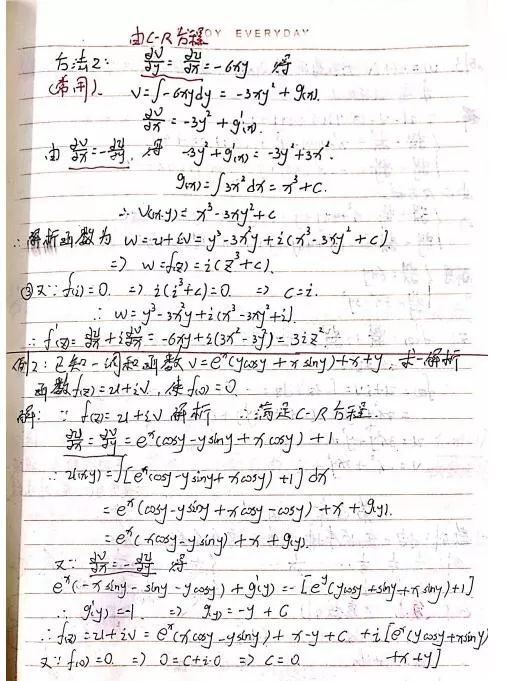 JOY EVERYDAY
由C-R方程
方法2: ∂v/∂y = ∂u/∂x = -6xy 得
(常用). v = ∫-6xydy = -3xy² + g(x).
∂v/∂x = -3y² + g'(x).
由 ∂v/∂x = -∂u/∂y. 得 -3y² + g'(x) = -3y² + 3x².
g(x) = ∫3x²dx = x³ + c.
∴ v(x,y) = x³ - 3xy² + c
∴ 解析函数为 w = u + iv = y³ - 3x²y + i(x³ - 3xy² + c)
⇒ w = f(z) = i(z³ + c).
③ 又∵ f(i) = 0. ⇒ i(i³ + c) = 0. ⇒ c = i.
∴ w = y³ - 3x²y + i(x³ - 3xy² + i).
∴ f'(z) = ∂u/∂x + i∂v/∂x = -6xy + i(3x² - 3y²) = 3iz².
例2: 已知一调和函数 v = eˣ(ycosy + xsiny) + x + y. 求一解析
函数 f(z) = u + iv, 使 f(0) = 0.
解: ∵ f(z) = u + iv 解析 ∴ 满足C-R方程
∂u/∂x = ∂v/∂y = eˣ(cosy - ysiny + xcosy) + 1.
∴ u(x,y) = ∫[eˣ(cosy - ysiny + xcosy) + 1]dx
= eˣ(cosy - ysiny + xcosy - cosy) + x + g(y).
= eˣ(xcosy - ysiny) + x + g(y).
又∵ ∂v/∂x = -∂u/∂y 得
eˣ(-xsiny - siny - ycosy) + g'(y) = -[eʸ(ycosy + siny + xsiny) + 1]
∴ g'(y) = -1 ⇒ g(y) = -y + C
∴ f(z) = u + iv = eˣ(xcosy - ysiny) + x - y + C + i[eˣ(ycosy + xsiny)
+ x + y]
又∵ f(0) = 0 ⇒ 0 = C + i·0 ⇒ C = 0.